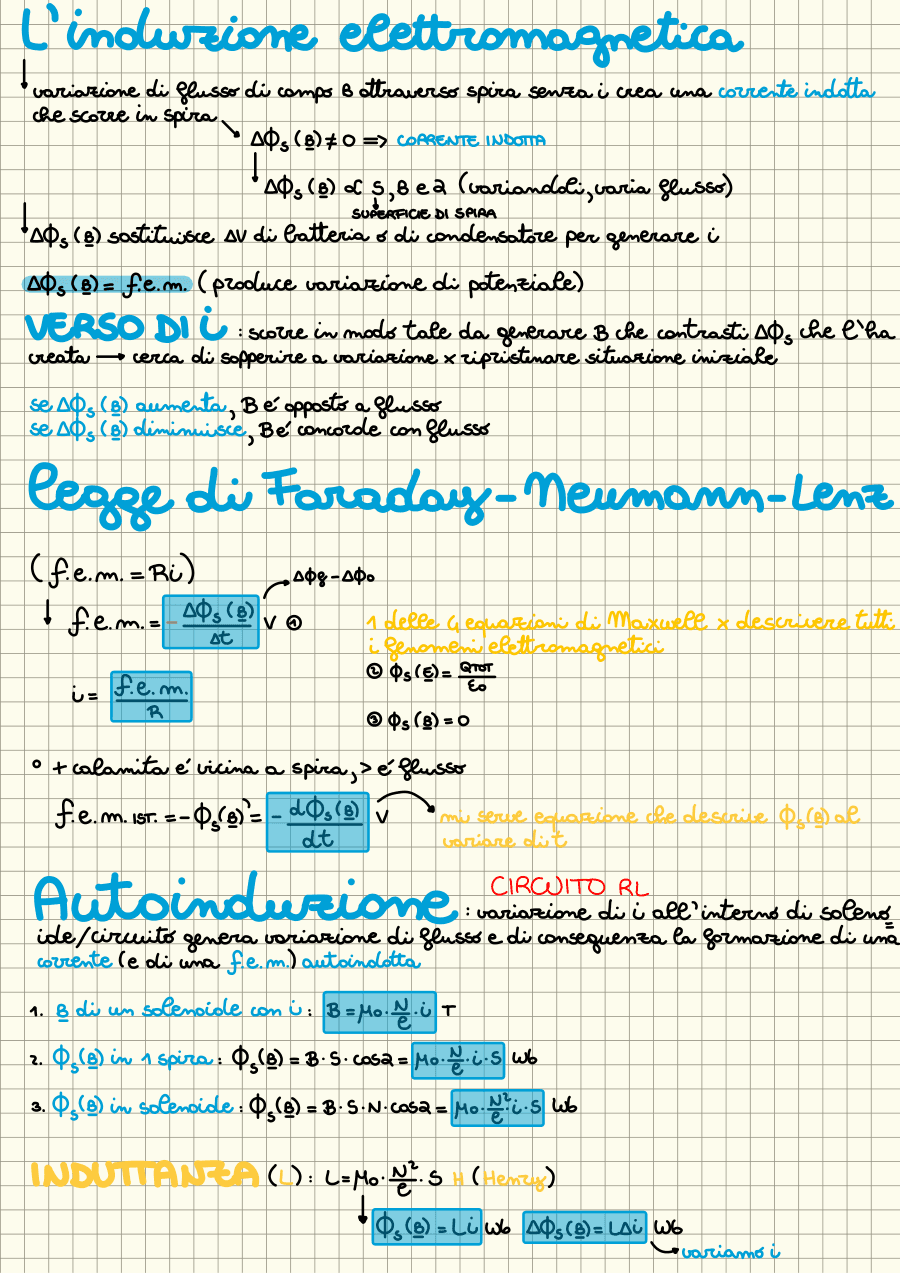 L'induzione elettromagnetica
variazione di flusso di campo B attraverso spira senza i crea una corrente indotta
che scorre in spira
ΔΦs (B) ≠ 0 => CORRENTE INDOTTA
ΔΦs (B) ∝ S, B e 2 (variandoli, varia flusso)
SUPERFICIE DI SPIRA
ΔΦs (B) sostituisce ΔV di batteria o di condensatore per generare i
ΔΦs (B) = f.e.m. (produce variazione di potenziale)
VERSO DI i : scorre in modo tale da generare B che contrasti ΔΦs che l'ha
creata → cerca di sopperire a variazione x ripristinare situazione iniziale
se ΔΦs (B) aumenta, B e' opposto a flusso
se ΔΦs (B) diminuisce, B e' concorde con flusso
Legge di Faraday-Neumann-Lenz
(f.e.m. = Ri)
ΔΦf - ΔΦ0
f.e.m. = - ΔΦs (B) / Δt V ①
1 delle 4 equazioni di Maxwell x descrivere tutti
i fenomeni elettromagnetici
② Φs (E) = QTOT / ε0
i = f.e.m. / R
③ Φs (B) = 0
° + calamita e' vicina a spira, > e' flusso
f.e.m. IST. = - Φs(B)' = - dΦs (B) / dt V
mi serve equazione che descrive Φs (B) al
variare di t
CIRCUITO RL
Autoinduzione : variazione di i all'interno di soleno
ide/circuito genera variazione di flusso e di conseguenza la formazione di una
corrente (e di una f.e.m.) autoindotta
1. B di un solenoide con i : B = μ0 · N/l · i T
2. Φs (B) in 1 spira : Φs (B) = B · S · cos2 = μ0 · N/l · i · S Wb
3. Φs (B) in solenoide : Φs (B) = B · S · N · cos2 = μ0 · N²/l i · S Wb
INDUTTANZA (L) : L = μ0 · N²/l · S H (Henry)
Φs (B) = Li Wb ΔΦs (B) = LΔi Wb
variamo i